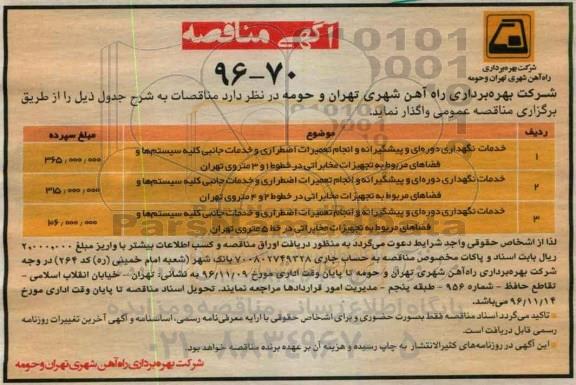 آگهی مناقصه
۹۶-۷۰
شرکت بهره‌برداری
راه‌آهن شهری تهران و حومه
شرکت بهره‌برداری راه آهن شهری تهران و حومه در نظر دارد مناقصات به شرح جدول ذیل را از طریق
برگزاری مناقصه عمومی واگذار نماید.
ردیف موضوع مبلغ سپرده
۱ خدمات نگهداری دوره‌ای و پیشگیرانه و انجام تعمیرات اضطراری و خدمات جانبی کلیه سیستم‌ها و
فضاهای مربوط به تجهیزات مخابراتی در خطوط ۱ و ۳ متروی تهران ۳۶۵,۰۰۰,۰۰۰
۲ خدمات نگهداری دوره‌ای و پیشگیرانه و انجام تعمیرات اضطراری و خدمات جانبی کلیه سیستم‌ها و
فضاهای مربوط به تجهیزات مخابراتی در خطوط ۲ و ۴ متروی تهران ۳۱۵,۰۰۰,۰۰۰
۳ خدمات نگهداری دوره‌ای و پیشگیرانه و انجام تعمیرات اضطراری و خدمات جانبی کلیه سیستم‌ها و
فضاهای مربوط به تجهیزات مخابراتی در خط ۵ متروی تهران ۱۰۶,۰۰۰,۰۰۰
لذا از اشخاص حقوقی واجد شرایط دعوت می‌گردد به منظور دریافت اوراق مناقصه و کسب اطلاعات بیشتر با واریز مبلغ ۲۰۰۰,۰۰۰
ریال بابت اسناد و پاکات مخصوص مناقصه به حساب جاری ۷۰۰۸۰۲۷۴۹۳۲۸ بانک شهر (شعبه امام خمینی (ره) کد ۲۶۴) در وجه
شرکت بهره‌برداری راه‌آهن شهری تهران و حومه تا پایان وقت اداری مورخ ۹۶/۱۱/۰۹ به نشانی: تهران - خیابان انقلاب اسلامی -
تقاطع حافظ - شماره ۹۵۶ - طبقه پنجم - مدیریت امور قراردادها مراجعه نمایند. تحویل اسناد مناقصه تا پایان وقت اداری مورخ
۹۶/۱۱/۱۴ می‌باشد.
- تاکید می‌گردد اسناد مناقصه فقط بصورت حضوری و برای اشخاص حقوقی با ارایه معرفی‌نامه رسمی، اساسنامه و آگهی آخرین تغییرات روزنامه
رسمی قابل دریافت است.
- این آگهی در روزنامه‌های کثیرالانتشار به چاپ رسیده و هزینه آن بر عهده برنده مناقصه خواهد بود.
شرکت بهره‌برداری راه‌آهن شهری تهران و حومه